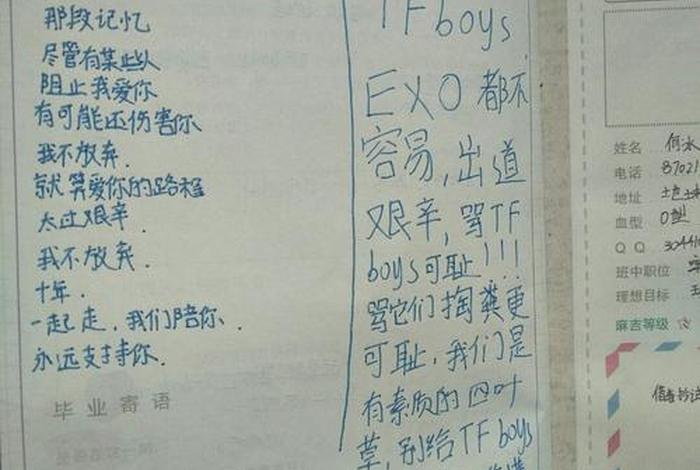 那段记忆
尽管有某些人
阻止我爱你
有可能还伤害你
我不放弃.
就算爱你的路程
太过艰辛.
我不放弃.
十年.
一起走,我们陪你、.
永远支持你.
毕业寄语
TFboys
EXO都不
容易,出道
艰辛,骂TF
boys可耻!!!
骂它们掏粪更
可耻,我们是
有素质的四叶
草,别给TFboys
姓名 何
电话 87021
地址
血型 O型
QQ 30441
班中职位
理想目标
麻吉等级